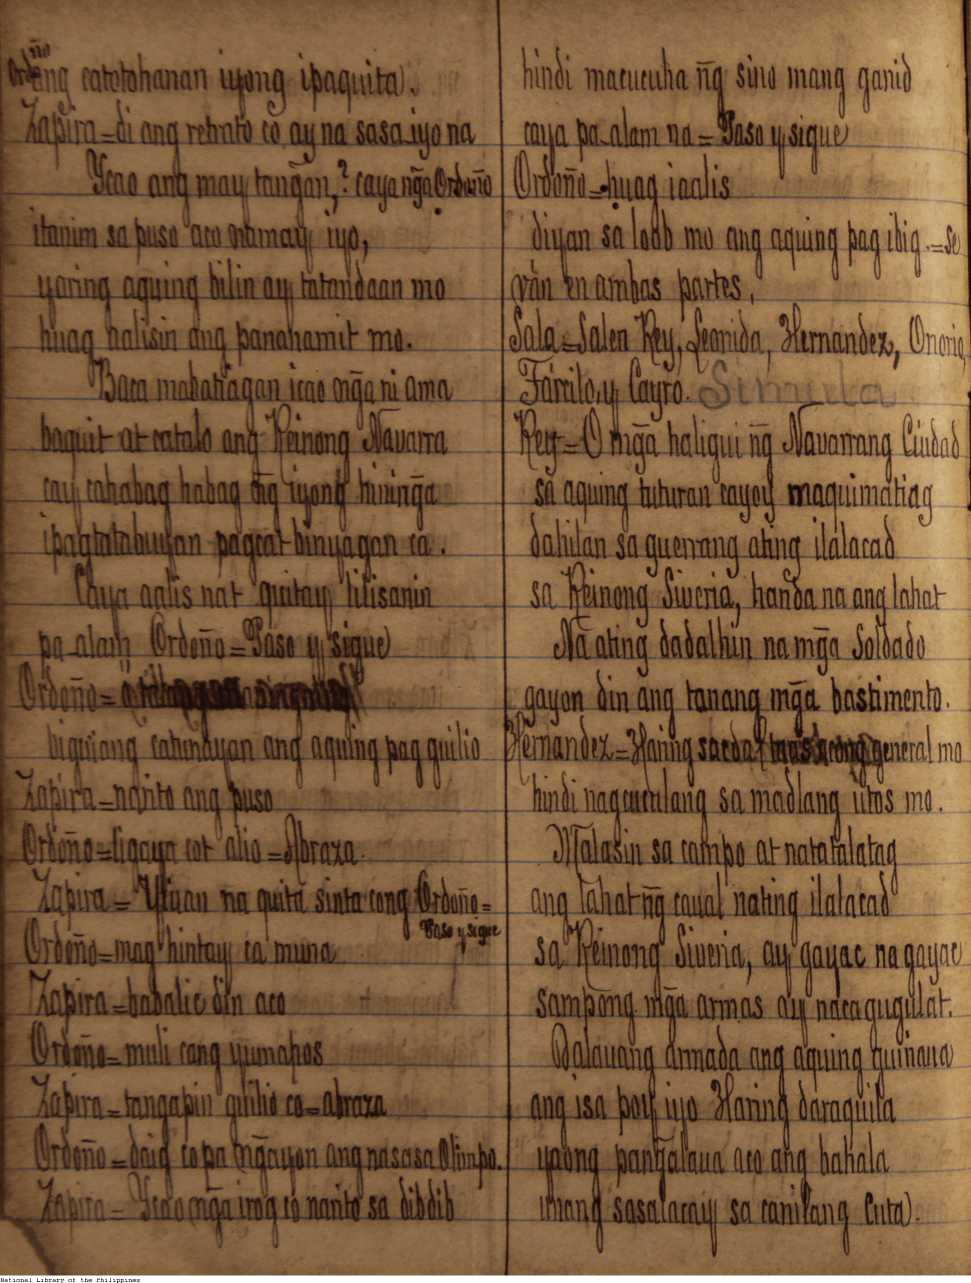 ang catotohanan iyong ipaquita).
Zapira=di ang retrato co ay na sasa iyo na
Ycao ang may tang̃an,? caya ng̃a Ordoño
itanim sa puso aco naman iyo,
yaring aquing bilin ay tatandaan mo
huag halisin ang panahamit mo.
Baca mabatiagan icao ng̃a ni ama
baquit at catalo ang Reinong Navarra
cay cahabag habag ng̃ iyong hining̃a
ipagtatabuyan pagcat binyagan ca.
Caya aalis nat quitay lilisanin
pa-alam Ordoño=Paso y sigue)
Ordoño=
biguiang catimauan ang aquing pag guilio
Zapira=narito ang puso
Ordoño=ligaya cot alio=Abraza.
Zapira=Yiuan na quita sinta cong Ordoño=
Paso y sigue
Ordoño=mag hintay ca muna
Zapira=babalic din aco
Ordoño=muli cang yumapos
Zapira=tangapin guilio co=abraza
Ordoño=daig co pa ng̃ayon ang nasasa Olimpo.
Zapira=Ycao ng̃a irog co narito sa dibdib
hindi macucuha ng̃ sino mang ganid
caya pa-alam na=Paso y sigue
Ordoño=huag iaalis
diyan sa loob mo ang aquing pag ibig.=se
ván en ambas partes,
Sala=Salen Rey, Leonida, Hernandez, Onorio,
Fárcilo, y Cayro. Simula
Rey=O mg̃a haligui ng̃ Navarrang Ciudad
sa aquing tuturan cayoy maquimatiag
dahilan sa guerrang ating ilalacad
sa Reinong Siveria, handa na ang lahat
Na ating dadalhin na mg̃a Soldado
gayon din ang tanang mg̃a bastimento.
Hernandez=Haring general mo
hindi nagcuculang sa madlang utos mo.
Malasin sa campo at natatalatag
ang lahat ng̃ caual nating ilalacad
sa Reinong Siveria, ay gayac na gayac
sampong mg̃a armas ay nacagugulat.
Dalauang armada ang aquing guinaua
ang isa poy iyo Haring daraquila
yaong pang̃alaua aco ang bahala
imang sasalacay sa canilang Cuta).